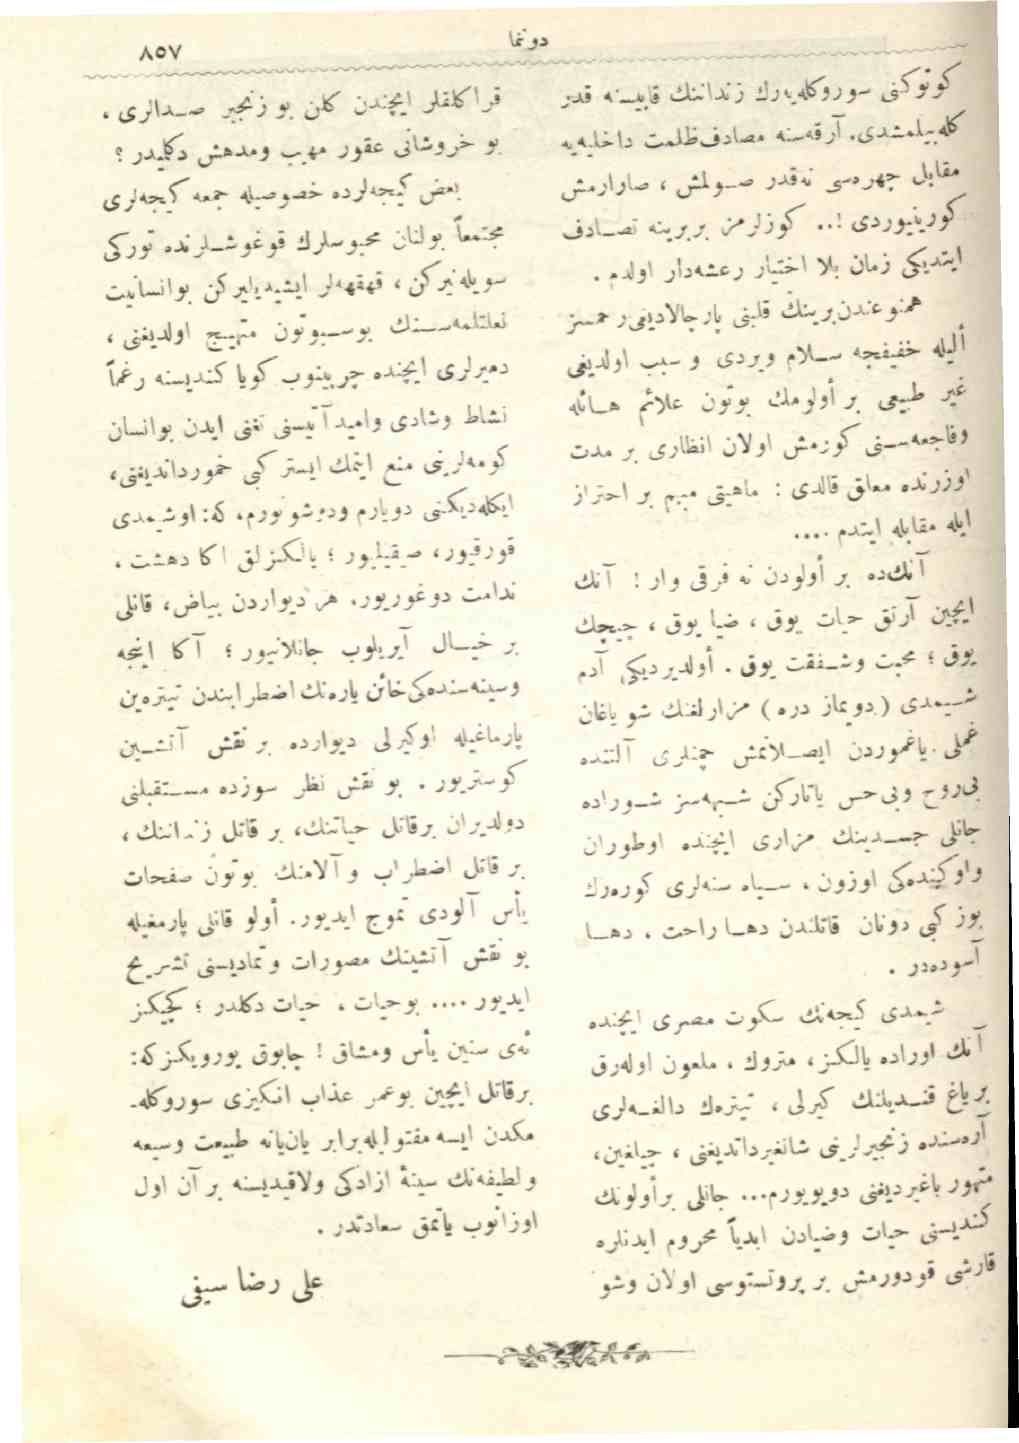 دوننما
٨٥٧
كوتوكنى سوروكله‌يه‌رك زنداننك قاپيسنه قدر
كله‌بيلمشدى. آرقه‌سنه مصادف ظلمت داخليه‌يه
مقابل چهره‌سى نه‌قدر صولمش ، صارارمش
كورينيوردى !.. كوزلرمز بربرينه تصادف
ايتديكى زمان بلا اختيار رعشه‌دار اولدم .
همنوعندن برينك قلبنى پارچالاديغى رحمسز
أليله خفيفجه سلام ويردى و سبب اولديغى
غير طبيعى بر أولومك بوتون علائم هائله
وفاجعه‌سنى كورمش اولان انظارى بر مدت
اوزرنده معلق قالدى : ماهيتى مبهم بر احتراز
ايله مقابله ايتدم ....
آنك‌ده بر أولودن نه فرقى وار ! آنك
ايچين آرتق حيات يوق ، ضيا يوق ، چيچك
يوق ؛ محبت وشفقت يوق . أولديرديكى آدم
شيمدى (دويماز دره) مزارلغنك شو ياغان
غملى ياغموردن ايصلانمش چمنلرى آلتنده
بى‌روح وبى‌حس ياتاركن شبهه‌سز شوراده
جانلى جسدينك مزارى ايچنده اوطوران
واوكنده‌كى اوزون ، سياه سنه‌لرى كوره‌رك
بوز كبى دونان قاتلندن دها راحت . دها
آسوده‌در .
شيمدى كيجه‌نك سكوت مصرى ايچنده
آنك اوراده يالكز ، متروك ، ملعون اوله‌رق
برياغ قنديلنك كيرلى ، تيتره‌ك دالغه‌لرى
آره‌سنده زنجيرلرينى شانغيرداتديغنى ، چيلغين،
متهور باغيرديغنى دويويورم... جانلى برأولونك
كنديسنى حيات وضيادن ابدياً محروم ايدنلره
قارشى قودورمش بر پروتستوسى اولان وشو
قراكلقلر ايچندن كلن بو زنجير صدالرى ،
بو خروشانى عقور مهيب ومدهش دكليدر ؟
بعض كيجه‌لرده خصوصيله جمعه كيجه‌لرى
مجتمعاً بولنان محبوسلرك قوغوشلرنده توركى
سويله‌نيركن ، قهقهه‌لر ايشيديليركن بوانسانيت
لعنتلمه‌سنك بوسبوتون متهيج اولديغنى ،
دميرلرى ايچنده چرپينوب كويا كنديسنه رغماً
نشاط وشادى واميد آتيسنى تغنى ايدن بوانسان
كومه‌لرينى منع ايتمك ايستر كبى خموردانديغنى،
ايكله‌ديكنى دويارم ودوشونورم، كه: اوشيمدى
قورقيور، صيقيليور ؛ يالكزلق اكا دهشت ،
ندامت دوغوريور. هر ديواردن بياض، قانلى
بر خيال آيريلوب جانلانيور ؛ آكا اينجه
وسينه‌سنده‌كى خائن ياره‌نك اضطرابندن تيتره‌ين
پارماغيله اوكيرلى ديوارده بر نقش آتشين
كوستريور . بو نقش نظر سوزده مستقبلنى
دولديران برقاتل حياتنك، بر قاتل زنداننك ،
بر قاتل اضطراب و آلامنك بوتون صفحات
يأس آلودى تموج ايديور. أولو قانلى پارمغيله
بو نقش آتشينك مصورات وتماديسنى تشريح
ايديور .... بوحيات ، حيات دكلدر ؛ كچيكز
ئه‌ى سنين يأس ومشاق ! چابوق يورويكز كه:
برقاتل ايچين بوعمر عذاب انكيزى سوروكله‌-
مكدن ايسه مقتوليله برابر يان يانه طبيعت وسيعه
ولطيفه‌نك سينهٔ ازادكى ولاقيديسنه بر آن اول
اوزانوب ياتمق سعادتدر .
على رضا سيفى